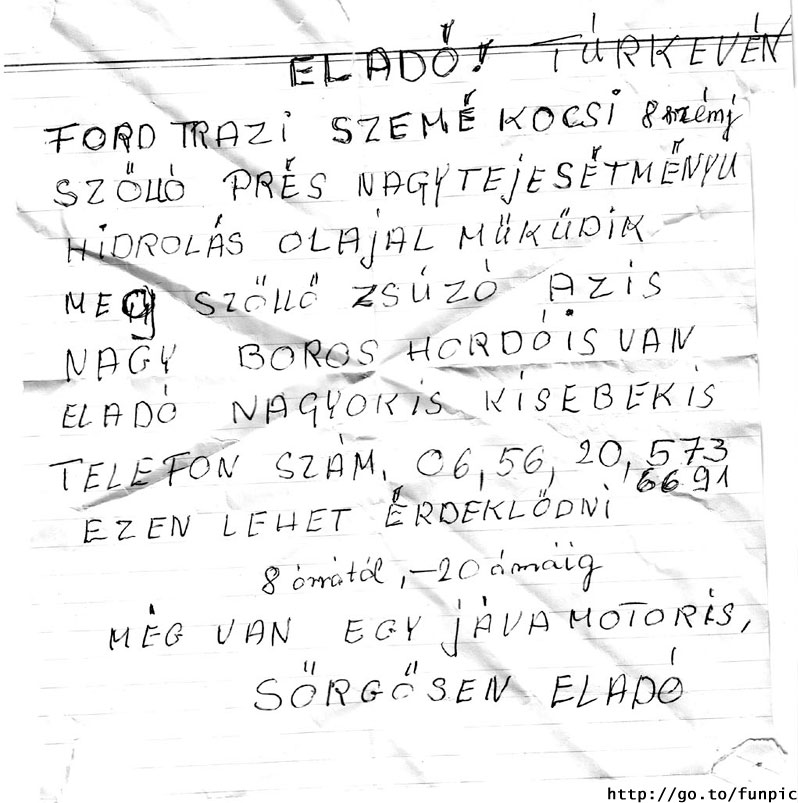 ELADÓ! TÚRKEVÉN
FORD TRAZI SZEMÉ KOCSI 8 szémj
SZŐLLŐ PRÉS NAGYTEJESÉTMÉNYŰ
HIDROLÁS OLAJAL MŰKŰDIK
MEG SZŐLLŐ ZSÚZÓ AZIS
NAGY BOROS HORDÓIS VAN
ELADÓ NAGYOKIS KISEBEKIS
TELEFON SZÁM, 06, 56, 20, 573
6691
EZEN LEHET ÉRDEKLŐDNI
8 órától, -20 óráig
MÉG VAN EGY JÁVA MOTORIS,
SŐRGŐSEN ELADÓ
http://go.to/funpic